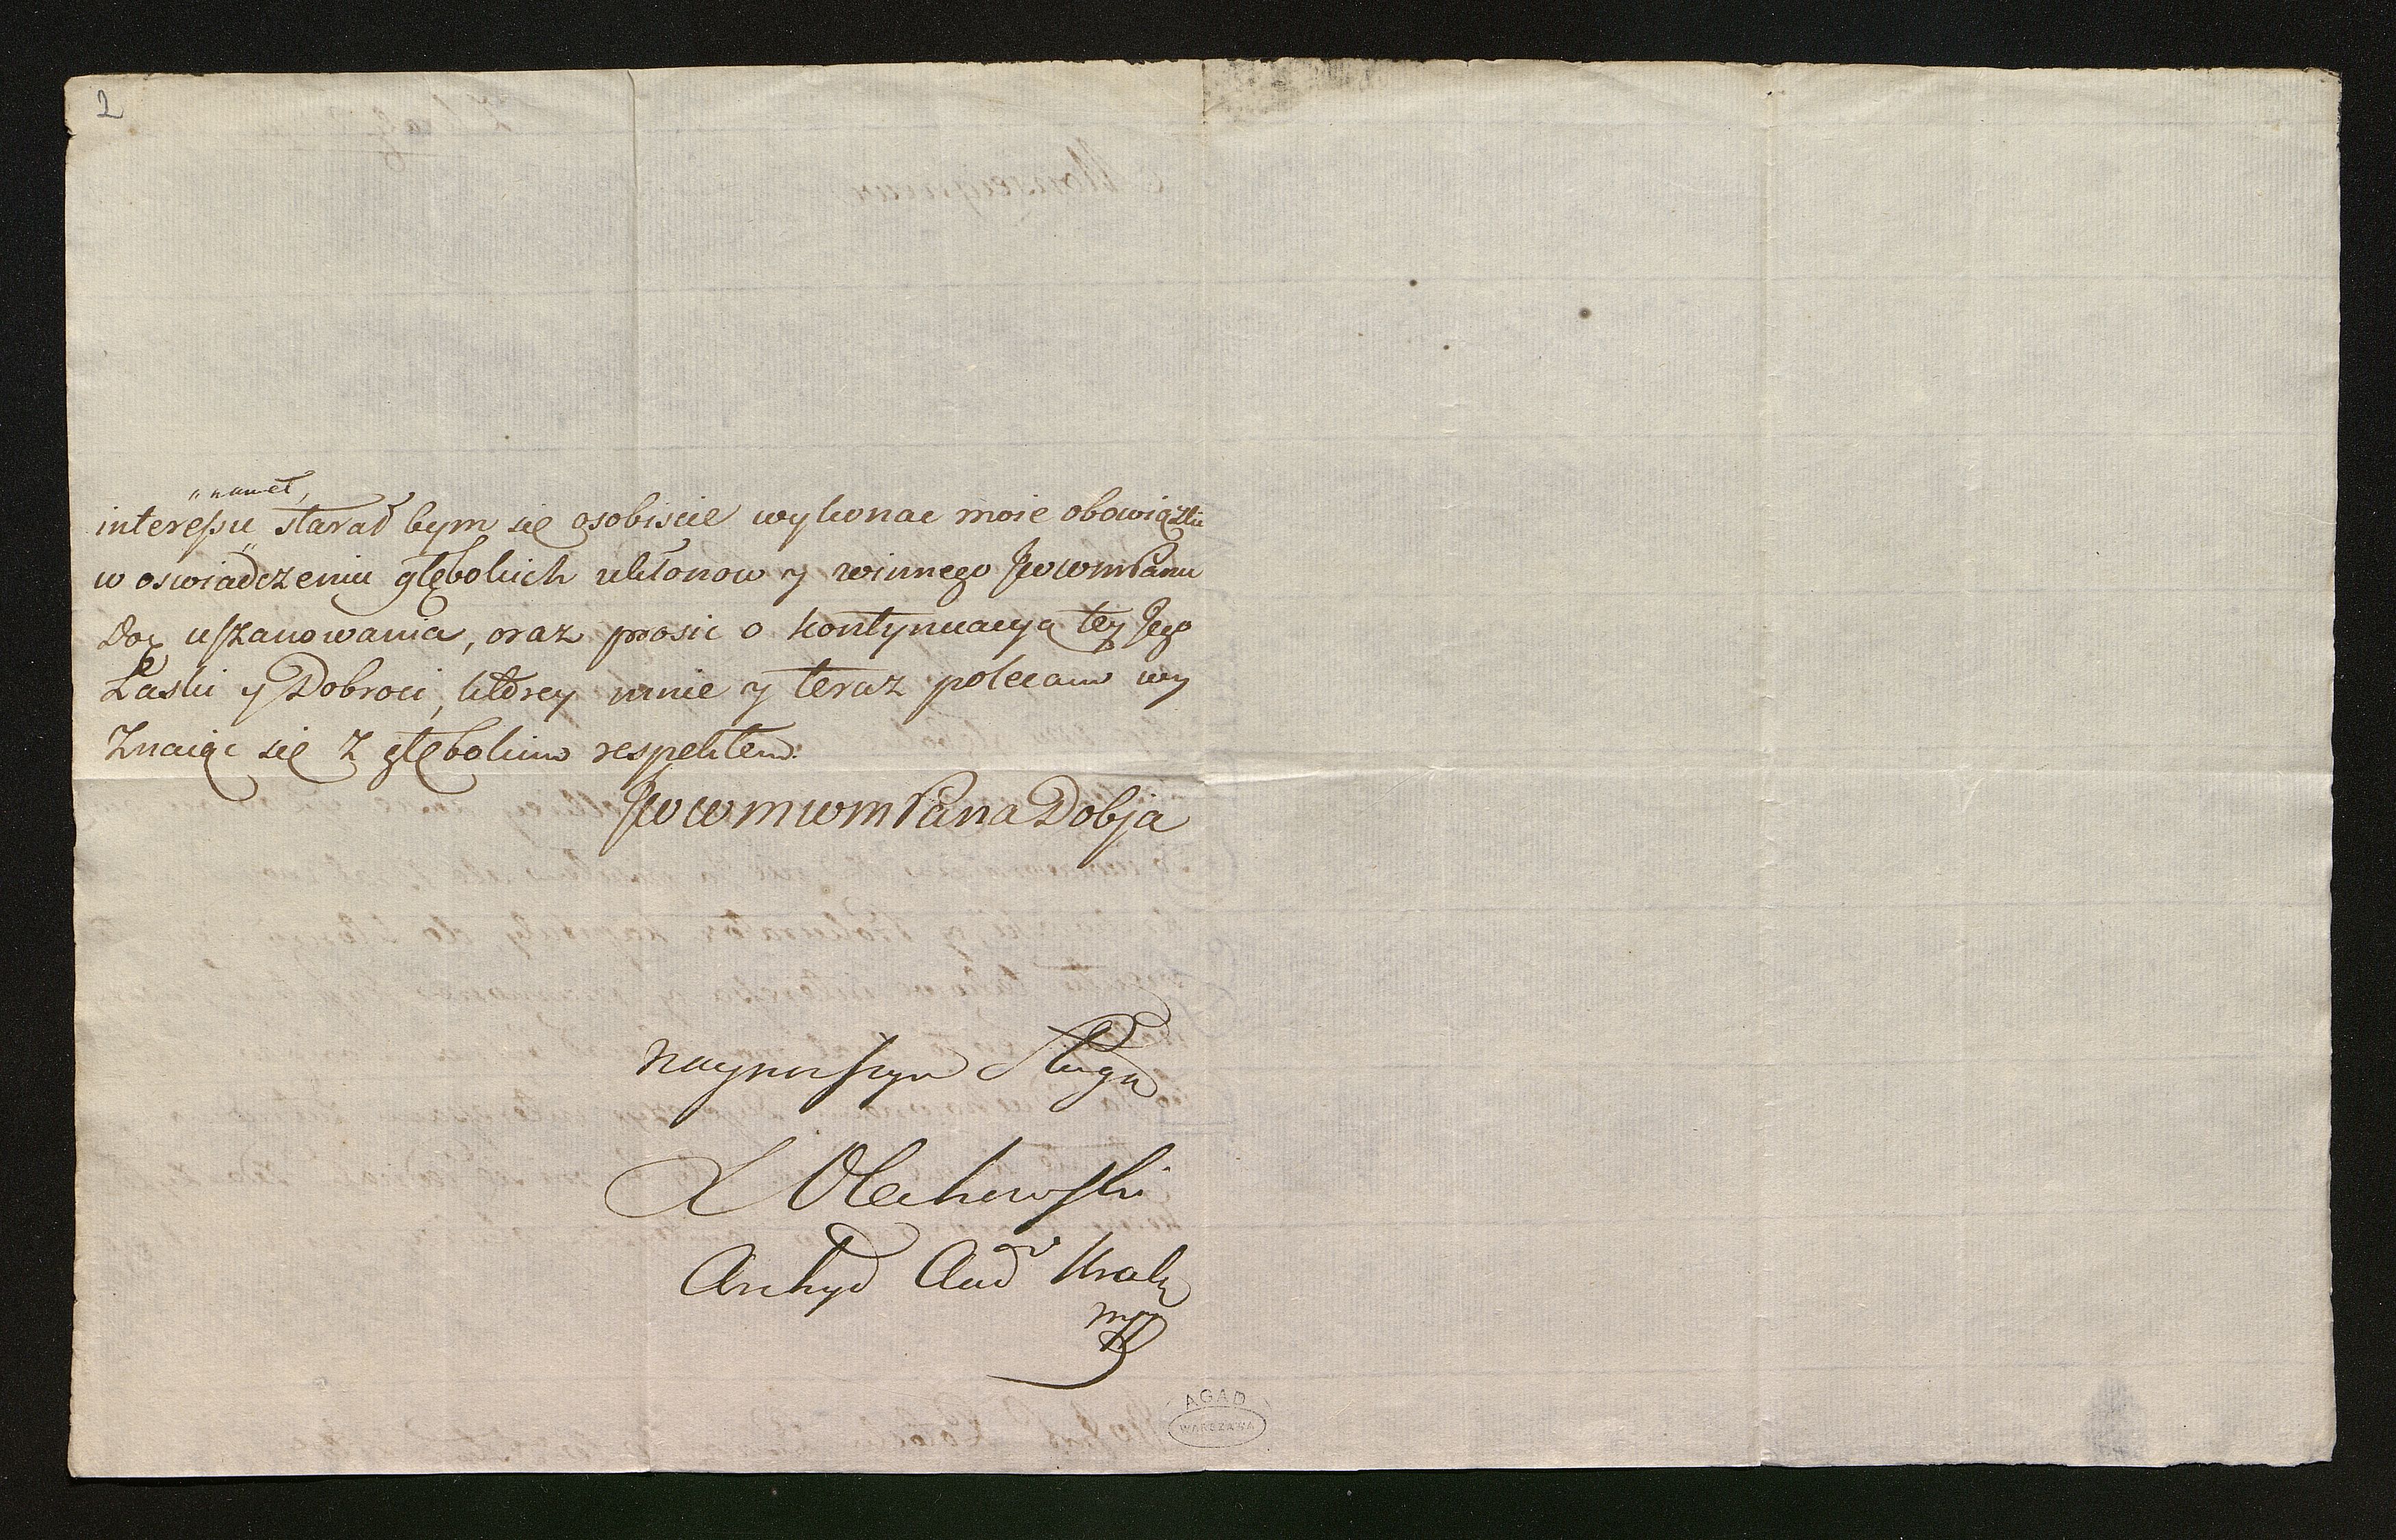 2
"nawet,
interessu, starał bym się osobiscie wykonac moie obowiązki
w oswiadczeniu głębokich ukłonow y winnego JWWMPanu
Do̅z̅ uszanowania, oraz prosic o kontynuacyą tey Jego
Łaski y Dobroci, ktorey mnie y teraz polecam wy
znaiąc się z głębokim respektem
JWWMWMPana Dobja
nayniższym Sługą
X Olechowski
Archyd Aud Krak
mp
AGAD
WARSZAWA